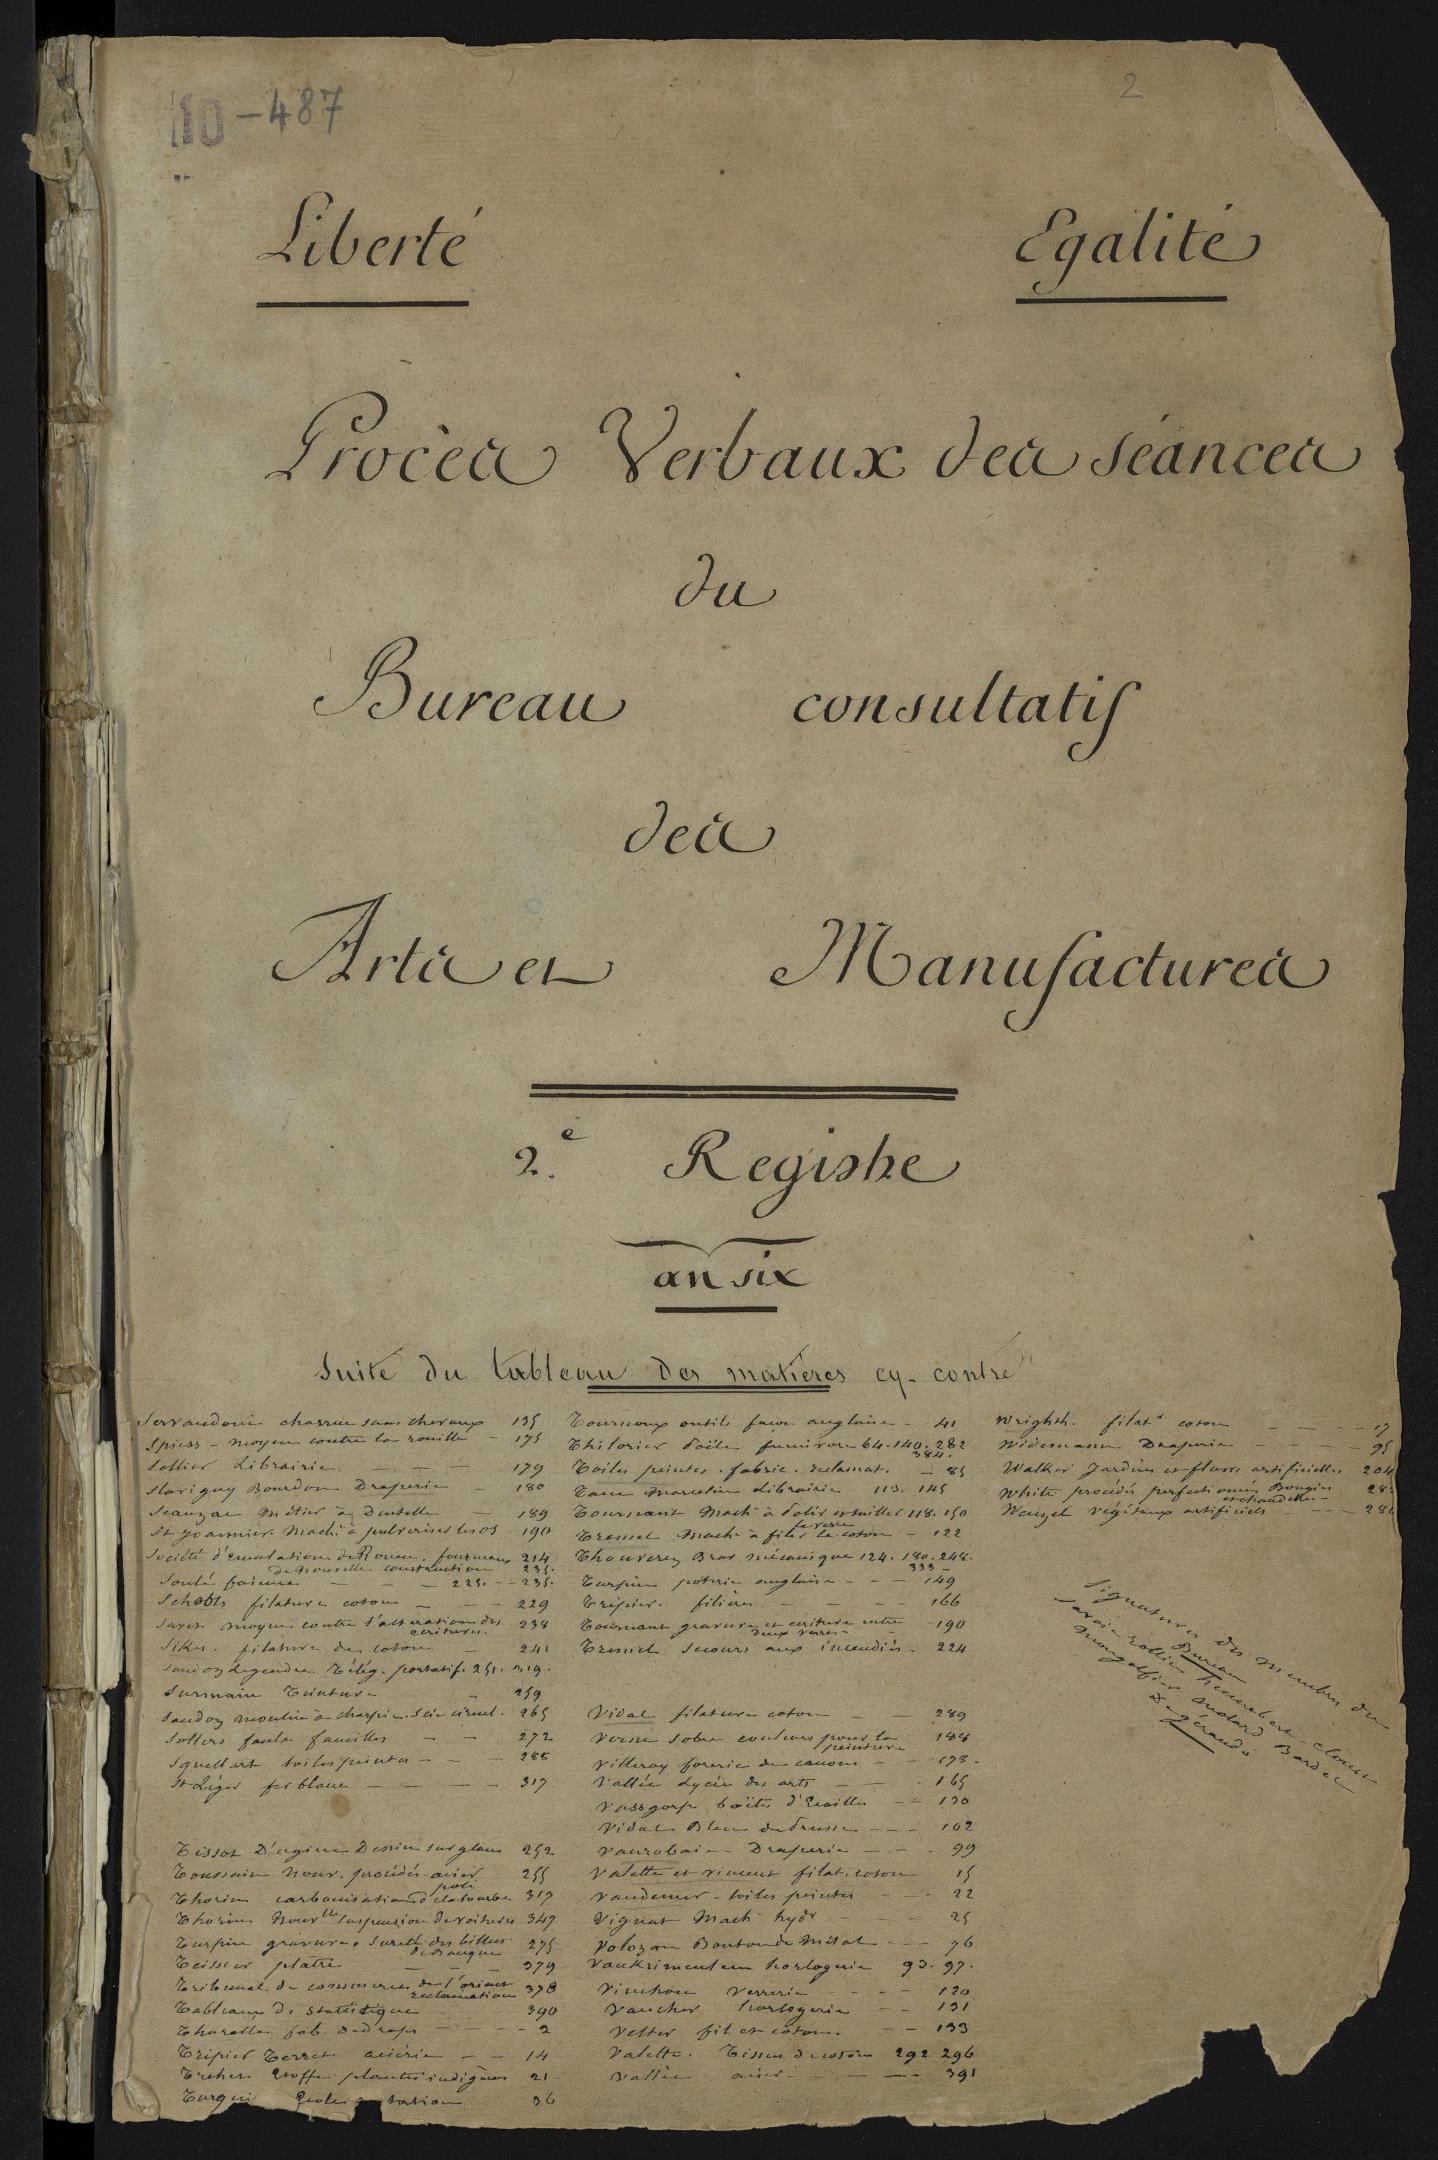 10-487
2
Liberté Egalité
Procès Verbaux des séances
du
Bureau consultatif
des
Arts et Manufactures
2.e Registre
an six
Suite du tableau des matières cy-contre
Servandoni charrue sans chevaux 135
Spiess - moyen contre la rouille - 175
Sellier Librairie - - - 179
Slavigny Bourdon Draperie - 180
Métier à Dentelle - 189
Machi à pulveriser les os - 190
Société d'émulation de Rouen. fourneaux 214
de nouvelle construction 235.
faience - - - 225. - - 235.
filature coton - - - 229
moyen contre l'altération des 238
écritures.
Sikes. filature de coton - 241
Télég. portatif. 251. 319.
Surmain Teinture - 259
moulin à 265
Sollers faulx faucilles - - 272
Squellart toiles peintes - - - 288
St Léger fer blanc - - - - 317
Tissot D'agine Dessin sur glace 252
Toussain Nouv. procédés acier 255
poli
Thorin carbonisation de la tourbe 317
Thorin Nouvlle suspension de voitures 347
Turpin gravure. sureté des billets 275
de Banque
Teissier platre - - - 379
Tribunal de commerce de l'orient 378
réclamation
Tableaux de statistique - - 390
fab. de draps - - - - 2
Tripier Terret aciérie - - 14
Etoffes plantes indigènes 21
36
Tournoux outils façon anglaise - 41
Thilorier Poële fumivore 64. 140. 282
384.
Toiles peintes. fabric. réclamat. - 85
Librairie 113. 145
Tournant Machi à Polir et tailler 118. 150
le verre
Tremel Machi à filer le coton - 122
Thouverez Bras mécanique 124. 180. 248.
333 -
Turpin poterie anglaise - - - 149
Tripier. filières - - - - 166
Tournant gravure et écriture entre - 190
deux verres -
Tremel secours aux incendiés - 224
Vidal filature coton - - 289
couleurs pour la 188
peinture
Villeroy forerie de canons - 178.
Vallée Lycée des arts - - - 165
boëtes d'Ecailles - - 130
Vidal Bleu de Prusse - - - 102
Draperie - - - 99
Valette et vincent filat. coton 15
Vandermer - toiles peintes - - - 22
Vignat Machi hydr - - - 25
Volozan Bouton de Métal - - - 76
horlogerie 93. 97.
Vinchon verrerie - - - - 120
Vaucher horlogerie - - 131
Vetter fil et coton. - - 133
Valette. Tissus de coton 292 296
Vallée acier - - - - 391
Wrighth. filatn coton - - - 17
Widemann Draperie - - - - 95
Walker Jardins et fleurs artificielles 204
White procédés perfectionnés Bougies 28
et chandelles -
Wenzel végétaux artificiels - - - 28
Signatures des Membres du
Bureau